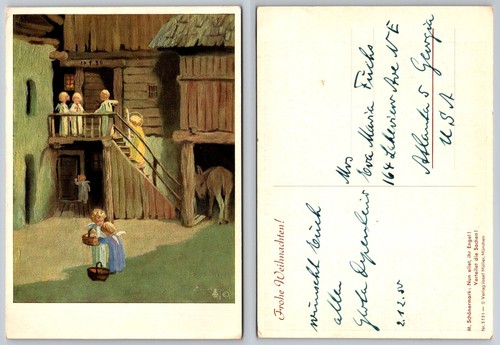 Frohe Weihnachten!
wünscht Euch
allen
2.12.50
Mrs
Eva Maria Fuchs
164 Lakeview Ave NE
Atlanta 5 Georgia
USA
M. Schönermark: Nun eilet, ihr Engel!
Verteilt die Sachen!
Verlag Josef Müller, München